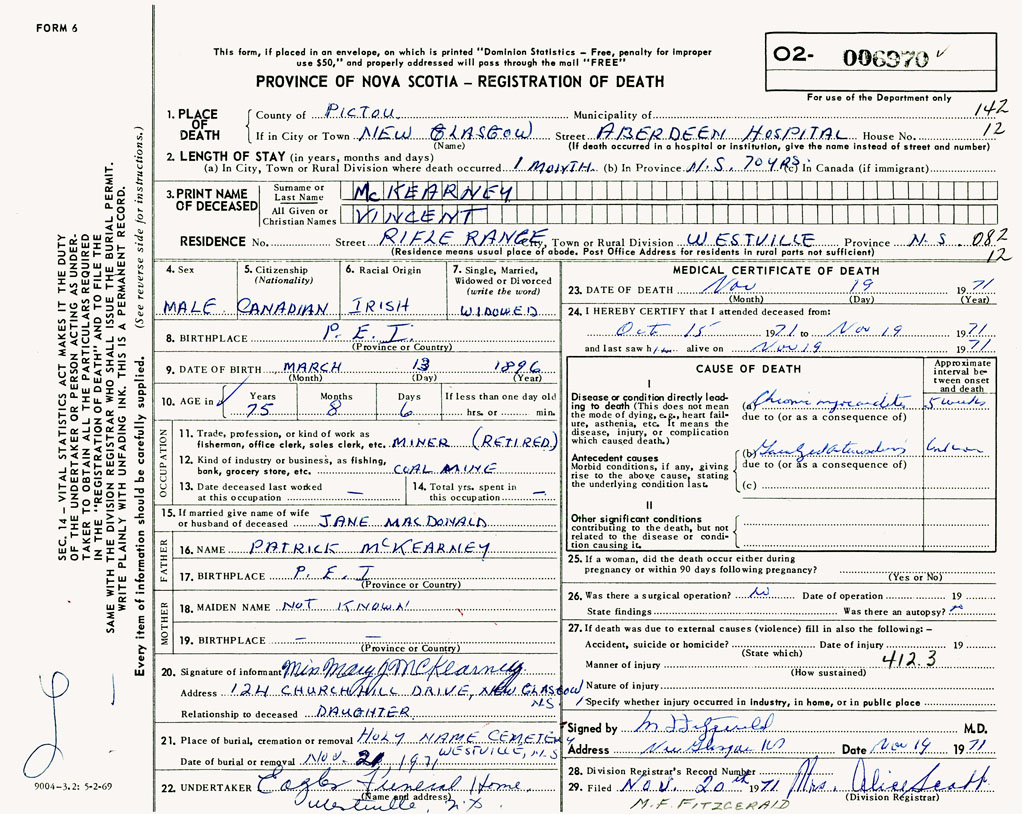 FORM 6
This form, if placed in an envelope, on which is printed "Dominion Statistics – Free, penalty for improper
use $50," and properly addressed will pass through the mail "FREE"
PROVINCE OF NOVA SCOTIA – REGISTRATION OF DEATH
O2- 006970
For use of the Department only
1. PLACE OF DEATH
County of PICTOU Municipality of 142
If in City or Town NEW GLASGOW Street ABERDEEN HOSPITAL House No. 12
(Name) (If death occurred in a hospital or institution, give the name instead of street and number)
2. LENGTH OF STAY (in years, months and days)
(a) In City, Town or Rural Division where death occurred 1 MONTH (b) In Province N.S. 70 YRS. (c) In Canada (if immigrant)
3. PRINT NAME OF DECEASED
Surname or Last Name McKEARNEY
All Given or Christian Names VINCENT
RESIDENCE No. Street RIFLE RANGE City, Town or Rural Division WESTVILLE Province N.S. 082
(Residence means usual place of abode. Post Office Address for residents in rural parts not sufficient) 12
4. Sex MALE
5. Citizenship (Nationality) CANADIAN
6. Racial Origin IRISH
7. Single, Married, Widowed or Divorced (write the word) WIDOWED
8. BIRTHPLACE P. E. I.
(Province or Country)
9. DATE OF BIRTH MARCH 13 1896
(Month) (Day) (Year)
10. AGE in Years Months Days If less than one day old
75 8 6 hrs. or min.
OCCUPATION
11. Trade, profession, or kind of work as
fisherman, office clerk, sales clerk, etc. MINER (RETIRED)
12. Kind of industry or business, as fishing,
bank, grocery store, etc. COAL MINE
13. Date deceased last worked
at this occupation –
14. Total yrs. spent in
this occupation –
15. If married give name of wife
or husband of deceased JANE MACDONALD
FATHER
16. NAME PATRICK McKEARNEY
17. BIRTHPLACE P. E. I
(Province or Country)
MOTHER
18. MAIDEN NAME NOT KNOWN
19. BIRTHPLACE – –
(Province or Country)
20. Signature of informant Miss Mary J McKearney
Address 124 CHURCHHILL DRIVE, NEW GLASGOW
N.S
Relationship to deceased DAUGHTER
21. Place of burial, cremation or removal HOLY NAME CEMETERY
WESTVILLE, N.S
Date of burial or removal NOV. 21, 1971
22. UNDERTAKER Eagles Funeral Home
(Name and address)
Westville, N.S.
MEDICAL CERTIFICATE OF DEATH
23. DATE OF DEATH Nov 19 1971
(Month) (Day) (Year)
24. I HEREBY CERTIFY that I attended deceased from:
Oct 15 1971 to Nov 19 1971
and last saw him alive on Nov 19 1971
CAUSE OF DEATH
Approximate interval between onset and death
I
Disease or condition directly leading to death (This does not mean the mode of dying, e.g., heart failure, asthenia, etc. It means the disease, injury, or complication which caused death.)
(a) Chronic myocarditis 5 weeks
due to (or as a consequence of)
Antecedent causes
Morbid conditions, if any, giving rise to the above cause, stating the underlying condition last.
(b)
due to (or as a consequence of)
(c)
II
Other significant conditions
contributing to the death, but not related to the disease or condition causing it.
25. If a woman, did the death occur either during
pregnancy or within 90 days following pregnancy?
(Yes or No)
26. Was there a surgical operation? No Date of operation 19
State findings Was there an autopsy? no
27. If death was due to external causes (violence) fill in also the following: –
Accident, suicide or homicide? Date of injury 19
(State which)
Manner of injury 412.3
(How sustained)
Nature of injury
Specify whether injury occurred in industry, in home, or in public place
Signed by M Fitzgerald M.D.
Address New Glasgow NS Date Nov 19 1971
28. Division Registrar's Record Number
29. Filed Nov. 20th 1971 Mrs. Alice Scott
(Division Registrar)
M. F. FITZGERALD
SEC. 14 – VITAL STATISTICS ACT MAKES IT THE DUTY
OF THE UNDERTAKER OR PERSON ACTING AS UNDER-
TAKER TO OBTAIN ALL THE PARTICULARS REQUIRED
IN THE "REGISTRATION OF DEATH" AND TO FILE THE
SAME WITH THE DIVISION REGISTRAR WHO SHALL ISSUE THE BURIAL PERMIT.
WRITE PLAINLY WITH UNFADING INK. THIS IS A PERMANENT RECORD.
Every item of information should be carefully supplied. (See reverse side for instructions.)
9004-3.2: 5-2-69